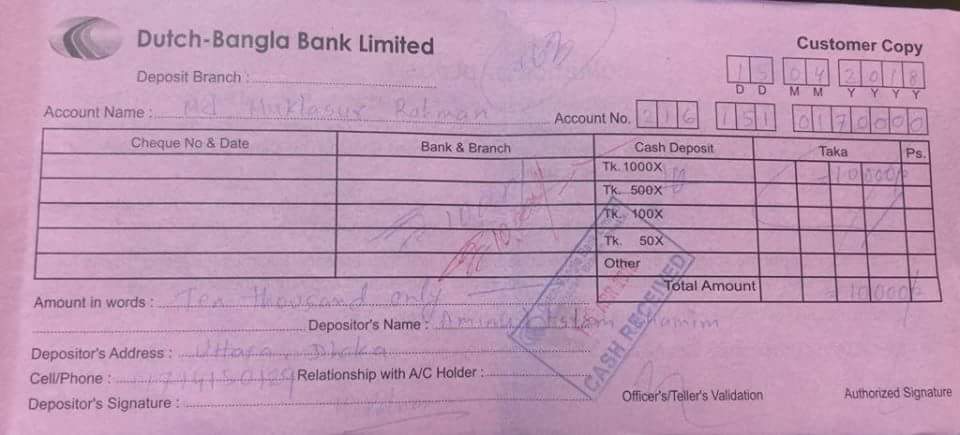 Dutch-Bangla Bank Limited
Customer Copy
Deposit Branch :
15 04 2018
D D M M Y Y Y Y
Account Name : Md Muklasur Rahman
Account No. 216 151 0170000
Cheque No & Date Bank & Branch Cash Deposit Taka Ps.
Tk. 1000X 10,000/-
Tk. 500X
Tk. 100X
Tk. 50X
Other
Total Amount 10,000/-
Amount in words : Ten thousand only
Depositor's Name : Aminul Islam Hamim
Depositor's Address : Uttara, Dhaka
Cell/Phone : Relationship with A/C Holder :
Depositor's Signature :
Officer's/Teller's Validation
Authorized Signature
CASH RECEIVED